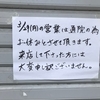 3/29(月)の営業は通院の為
お休みとさせて頂きます。
来店して下さった方には
大変申し訳ございません。